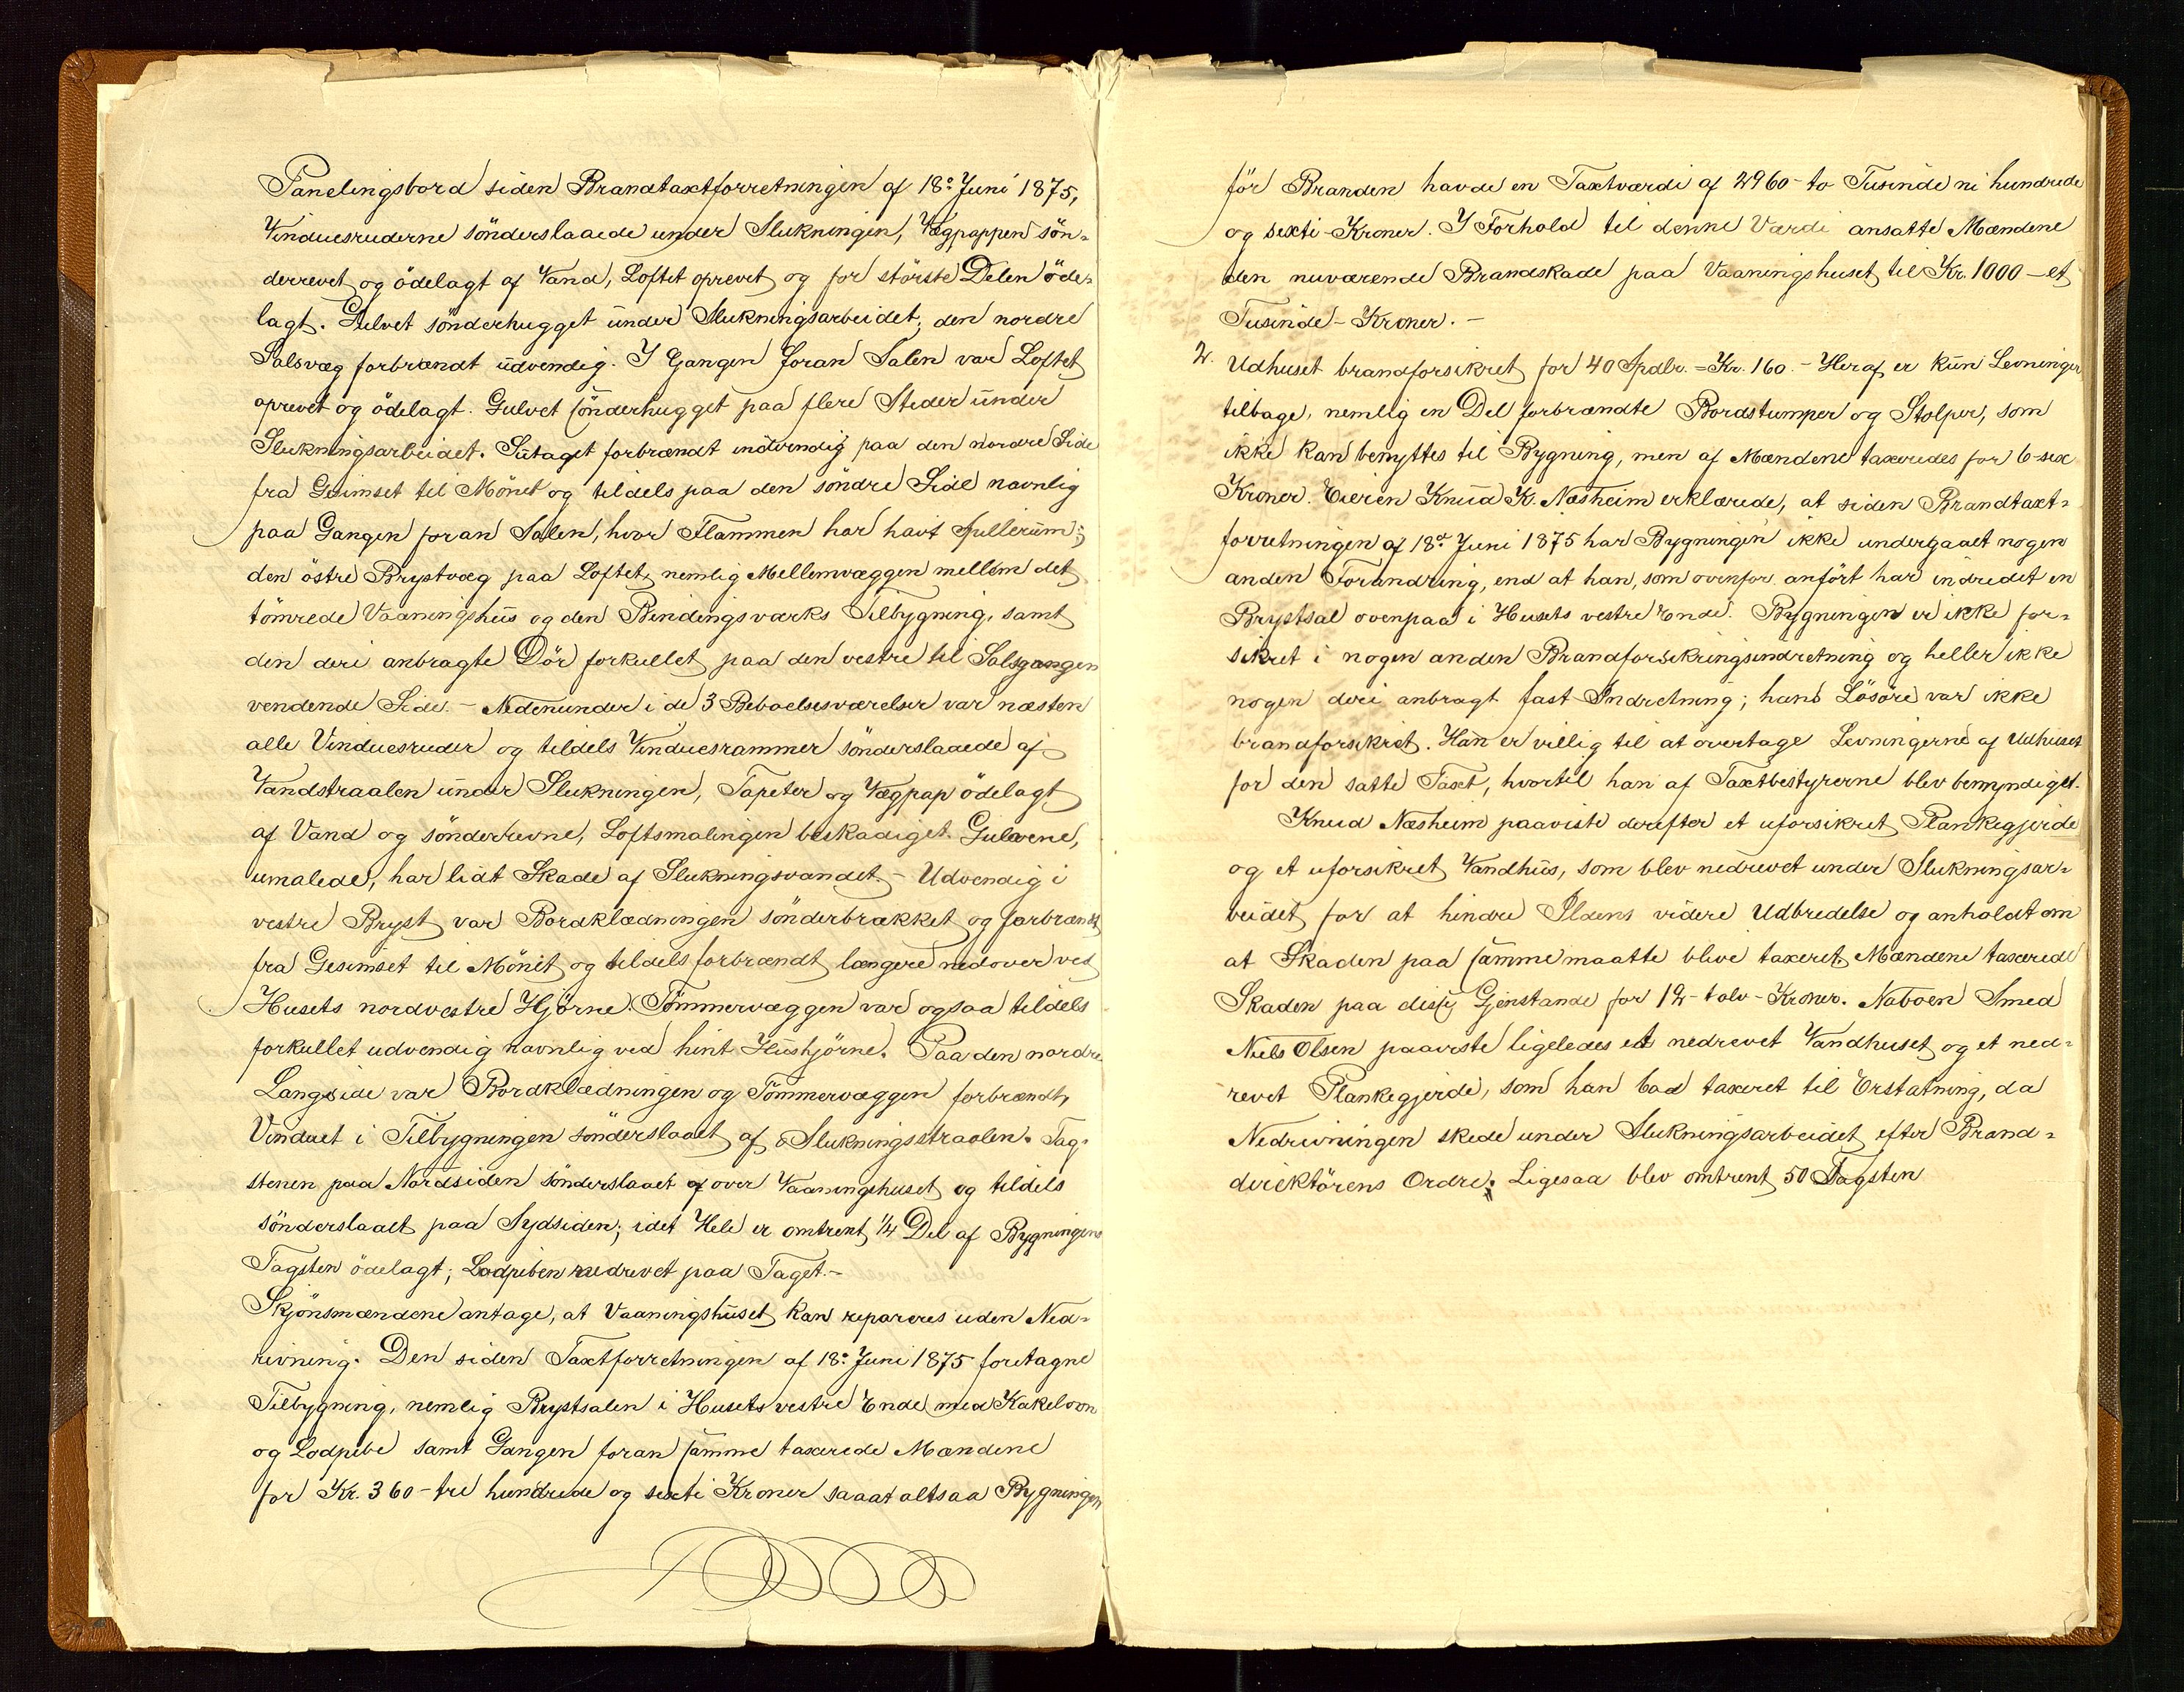 Panelingsbord siden Brandtaxtforretningen af 18de Juni 1875,
Vinduesruderne sönderslaaede under Slukningen, Vægpappen sön-
derrevet og ödelagt af Vand, Loftet oprevet og for störste Delen öde-
lagt. Gulvet sönderhugget under Slukningsarbeidet; den nordre
Salsvæg forbrændt udvendig. I Gangen foran Salen var Loftet
oprevet og ödelagt. Gulvet sönderhugget paa flere Steder under
Slukningsarbeidet. Sutaget forbrændt indvendig paa den nordre Side
fra Gesimset til Mönet og tildels paa den söndre Side navnlig
paa Gangen foran Salen, hvor Flammen har havt Spillerum;
den östre Brystvæg paa Loftet, nemlig Mellemvæggen mellem det
tömrede Vaaningshus og den Bindingsværks Tilbygning, samt
den deri anbragte Dör forkullet paa den vestre til Salsgangen
vendende Side. - Nedenunder i de 3 Beboelsesværelser var næsten
alle Vinduesruder og tildels Vinduesrammer sönderslaaede af
Vandstraalen under Slukningen, Tapeter og Vægpap ödelagt
af Vand og sönderrevne, Loftsmalingen beskadiget. Gulvene,
umalede, har lidt Skade af Slukningsvandet. - Udvendig i
vestre Bryst var Bordklædningen sönderbrækket og forbrændt
fra Gesimset til Mönet og tildels forbrændt længere nedover ved
Husets nordvestre Hjörne. Tömmervæggen var ogsaa tildels
forkullet udvendig navnlig ved hint Hushjörne. Paa den nordre
Langside var Bordklædningen og Tömmervæggen forbrændt,
Vinduet i Tilbygningen sönderslaaet af Slukningsstraalen. Tag-
stenen paa Nordsiden sönderslaaet af over Vaaningshuset og tildels
sönderslaaet paa Sydsiden; idet Hele er omtrent 1/4 Del af Bygningens
Tagsten ödelagt; Lodpiben nedrevet paa Taget. -
Skjönsmændene antage, at Vaaningshuset kan repareres uden Ned-
rivning. Den siden Taxtforretningen af 18de Juni 1875 foretagne
Tilbygning, nemlig Brystsalen i Husets vestre Ende med Kakelovn
og Lodpibe samt Gangen foran samme taxerede Mændene
for Kr. 360 - tre hundrede og sexti Kroner saaat altsaa Bygningen
för Branden havde en Taxtværdi af 2960 - to Tusinde ni hundrede
og sexti - Kroner. I Forhold til denne Værdi ansatte Mændene
den nuværende Brandskade paa Vaaningshuset til Kr. 1000 - et
Tusinde - Kroner. -
2. Udhuset brandforsikret for 40 Spdlr. = Kr. 160. - Heraf er kun Levninger
tilbage, nemlig en Del forbrændte Bordstumper og Stolper, som
ikke kan benyttes til Bygning, men af Mændene taxeredes for 6 - sex
Kroner. Eieren Knud K. Næsheim erklærede, at siden Brandtaxt-
forretningen af 18de Juni 1875 har Bygningen ikke undergaaet nogen
anden Forandring, end at han, som ovenfor anfört har indredet en
Brystsal ovenpaa i Husets vestre Ende. Bygningen er ikke for-
sikret i nogen anden Brandforsikringsindretning og heller ikke
nogen deri anbragt fast Indretning; hans Lösöre var ikke
brandforsikret. Han er villig til at overtage Levningerne af Udhuset
for den satte Taxt, hvortil han af Taxtbestyrerne blev bemyndiget.
Knud Næsheim paaviste derefter et uforsikret Plankegjerde
og et uforsikret Vandhus, som blev nedrevet under Slukningsar-
beidet for at hindre Ildens videre Udbredelse og anholdt om
at Skaden paa samme maatte blive taxeret. Mændene taxerede
Skaden paa disse Gjenstande for 12 - tolv - Kroner. Naboen Smed
Niels Olsen paaviste ligeledes et nedrevet Vandhuset og et ned-
revet Plankegjerde, som han bad taxeret til Erstatning, da
Nedrivningen skede under Slukningsarbeidet efter Brand-
direktörens Ordre. Ligesaa blev omtrent 50 Tagsten